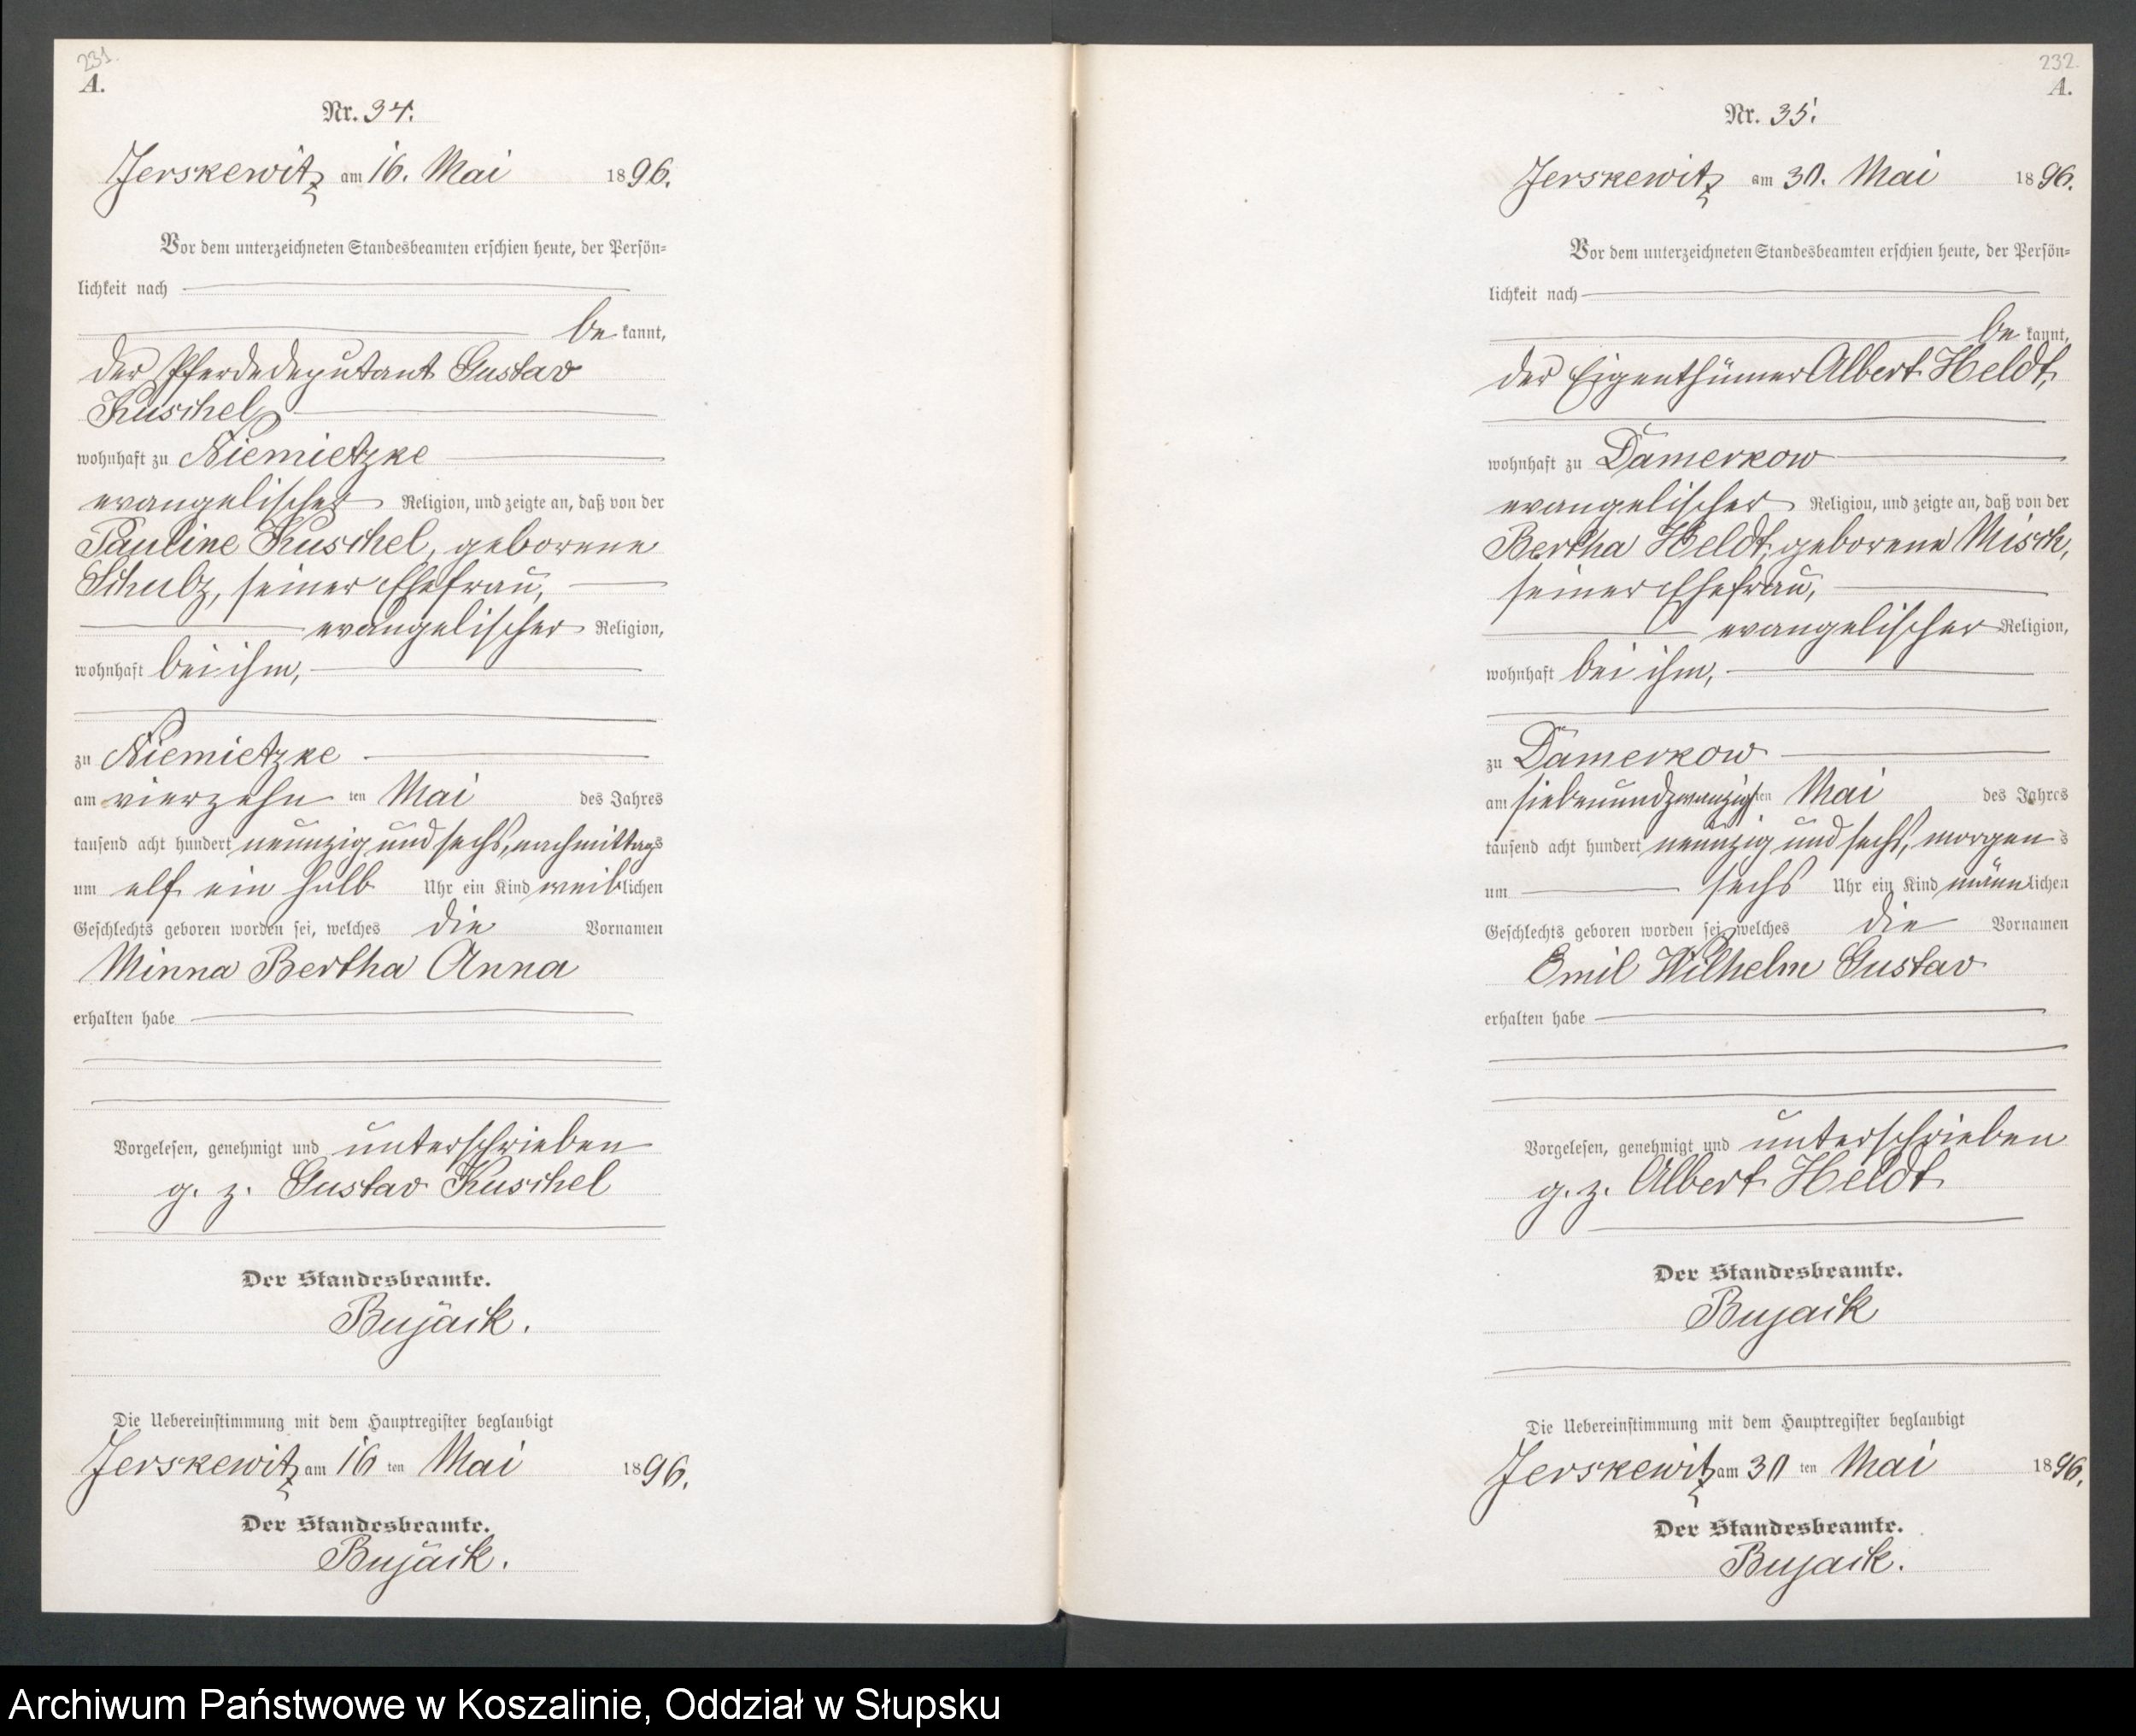 231.
A.
Nr. 34.
Jerskewitz am 16. Mai 1896.
Vor dem unterzeichneten Standesbeamten erschien heute, der Persön-
lichkeit nach
be kannt,
der Pferdedeputant Gustav
Kuschel,
wohnhaft zu Niemietzke
evangelischer Religion, und zeigte an, daß von der
Pauline Kuschel, geborene
Schulz, seiner Ehefrau,
evangelischer Religion,
wohnhaft bei ihm,
zu Niemietzke
am vierzehn ten Mai des Jahres
tausend acht hundert neunzig und sechs, nachmittags
um elf ein halb Uhr ein Kind weiblichen
Geschlechts geboren worden sei, welches die Vornamen
Minna Bertha Anna
erhalten habe
Vorgelesen, genehmigt und unterschrieben
g. z. Gustav Kuschel
Der Standesbeamte.
Bujack.
Die Uebereinstimmung mit dem Hauptregister beglaubigt
Jerskewitz am 16 ten Mai 1896.
Der Standesbeamte.
Bujack.
232.
A.
Nr. 35.
Jerskewitz am 30. Mai 1896.
Vor dem unterzeichneten Standesbeamten erschien heute, der Persön-
lichkeit nach
be kannt,
der Eigenthümer Albert Heldt,
wohnhaft zu Damerkow
evangelischer Religion, und zeigte an, daß von der
Bertha Heldt, geborene Misch,
seiner Ehefrau,
evangelischer Religion,
wohnhaft bei ihm,
zu Damerkow
am siebenundzwanzigsten Mai des Jahres
tausend acht hundert neunzig und sechs, morgens
um sechs Uhr ein Kind männlichen
Geschlechts geboren worden sei, welches die Vornamen
Emil Wilhelm Gustav
erhalten habe
Vorgelesen, genehmigt und unterschrieben
g. z. Albert Heldt
Der Standesbeamte.
Bujack
Die Uebereinstimmung mit dem Hauptregister beglaubigt
Jerskewitz am 30 ten Mai 1896.
Der Standesbeamte.
Bujack.
Archiwum Państwowe w Koszalinie, Oddział w Słupsku